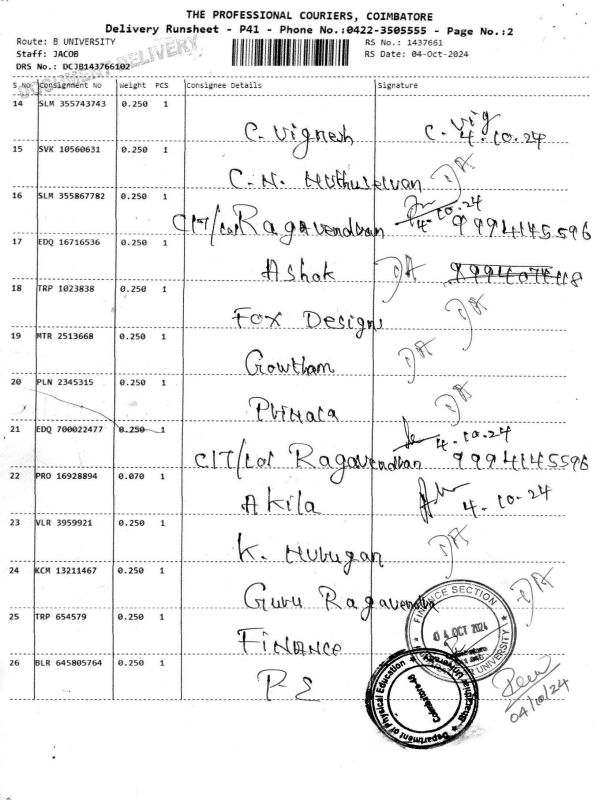 THE PROFESSIONAL COURIERS, COIMBATORE
Delivery Runsheet - P41 - Phone No.:0422-3505555 - Page No.:2
Route: B UNIVERSITY
RS No.: 1437661
Staff: JACOB
RS Date: 04-Oct-2024
DRS No.: DCJB143766102
DOCUMENT DELIVERY
S No Consignment No Weight PCS Consignee Details Signature
14 SLM 355743743 0.250 1 C. Vignesh C. Vig 4-10-24
15 SVK 10560631 0.250 1 C.N. Muthuselvan
16 SLM 355867782 0.250 1 CIT/Lot Ragavendhan 4-10-24 9994145596
17 EDQ 16716536 0.250 1 Ashok
18 TRP 1023838 0.250 1 Fox Design
19 MTR 2513668 0.250 1 Gowtham
20 PLN 2345315 0.250 1
21 EDQ 700022477 0.250 1 CIT/Lot Ragavendhan 4-10-24 9994145596
22 PRO 16928894 0.070 1 Akila 4-10-24
23 VLR 3959921 0.250 1 K. Murugan
24 KCM 13211467 0.250 1 Guru Ragavendra
25 TRP 654579 0.250 1 Finance
26 BLR 645805764 0.250 1 PE
FINANCE SECTION
04 OCT 2024
UNIVERSITY
Department of Physical Education
Bharathiar University
Coimbatore-46
04/10/24